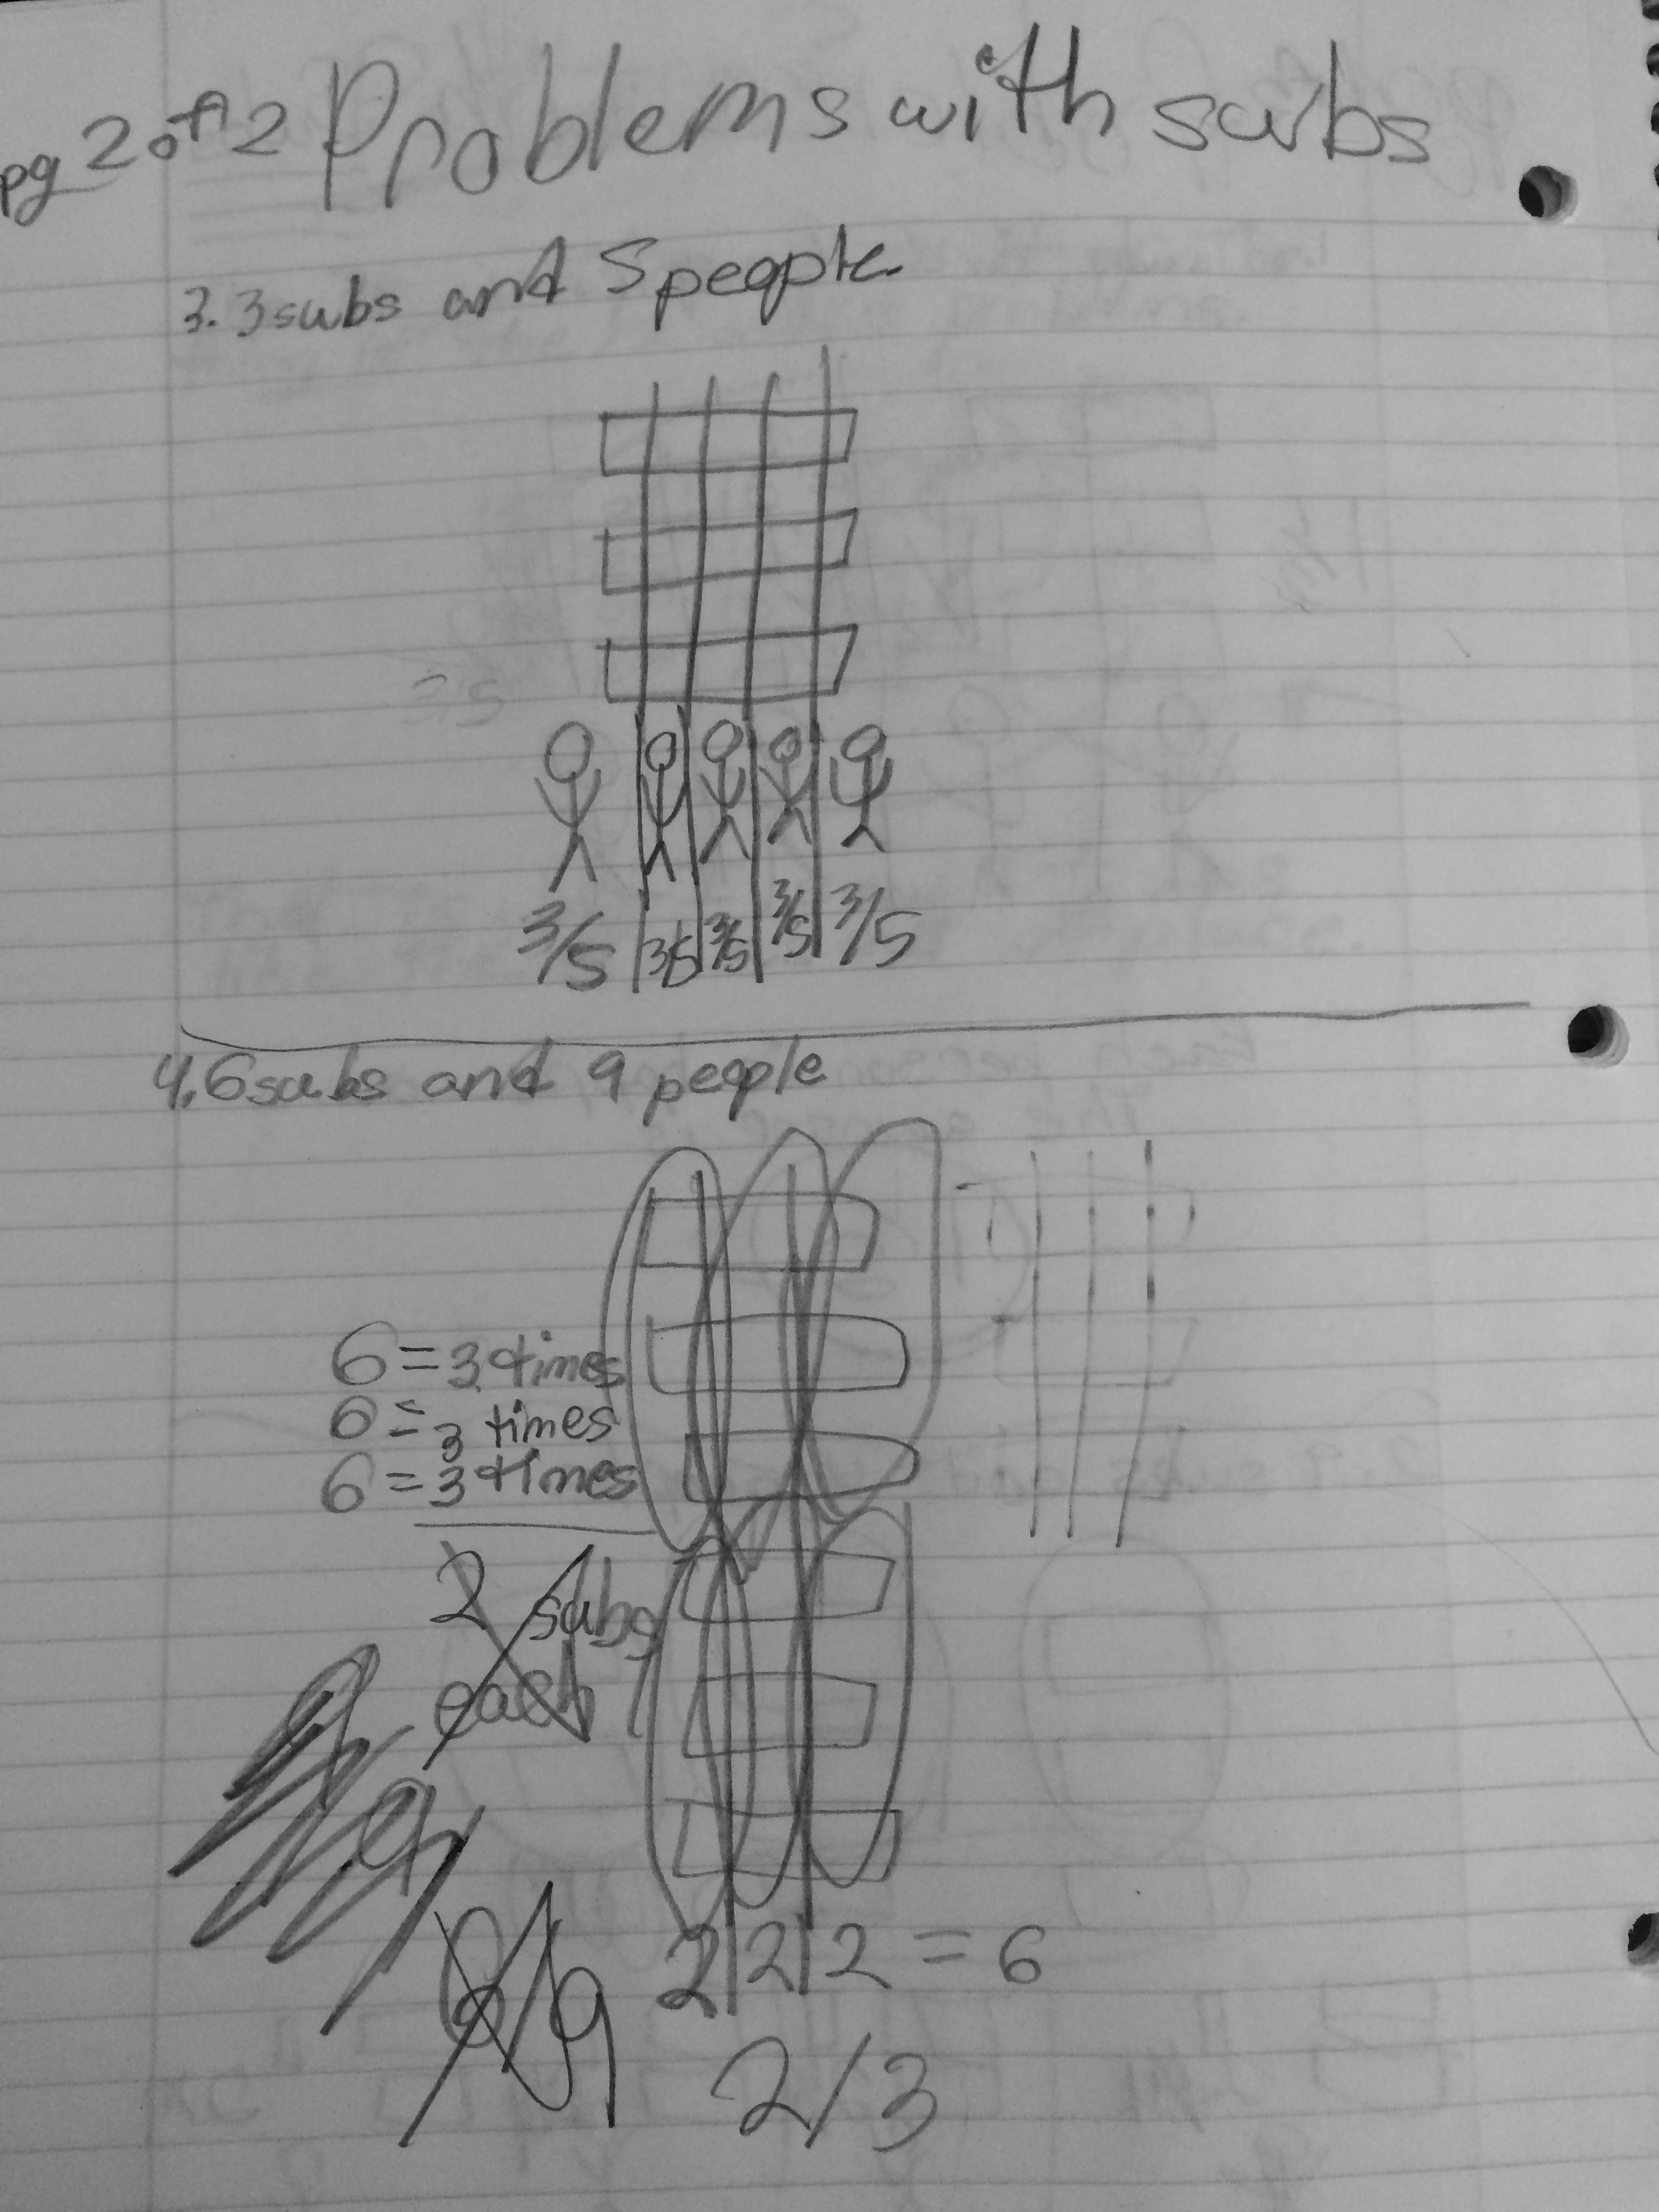 pg 2 of 2 Problems with subs
3. 3 subs and 5 people
3/5
3/5 3/5 3/5 3/5 3/5
4. 6 subs and 9 people
6 = 3 times
6 = 3 times
6 = 3 times
2 subs
each
6/9
2 | 2 | 2 = 6
2/3